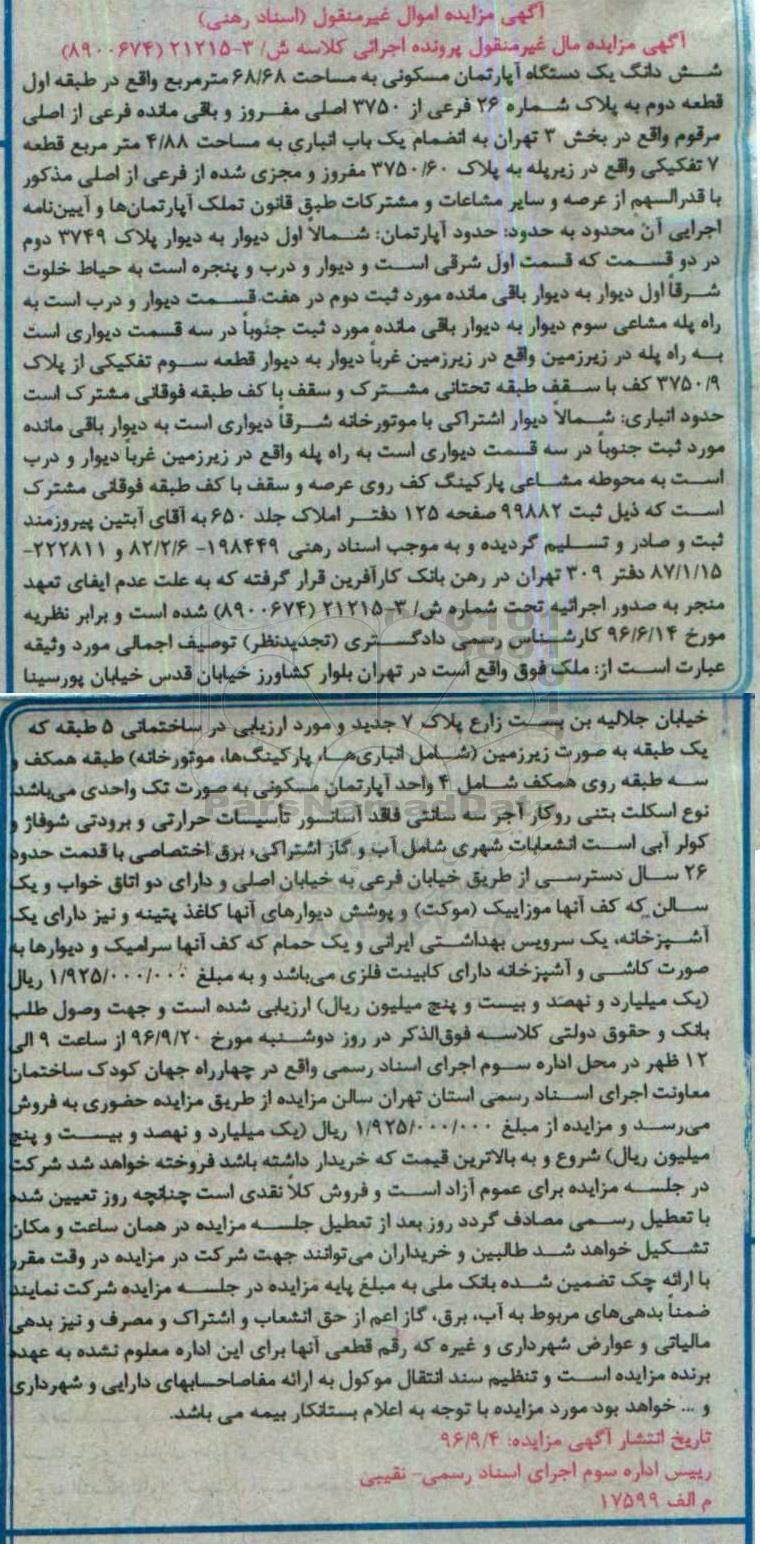 آگهی مزایده اموال غیرمنقول (اسناد رهنی)
آگهی مزایده مال غیرمنقول پرونده اجرائی کلاسه ش/ ۳-۲۱۲۱۵ (۸۹۰۰۶۷۴)
شش دانگ یک دستگاه آپارتمان مسکونی به مساحت ۶۸/۶۸ مترمربع واقع در طبقه اول
قطعه دوم به پلاک شماره ۲۶ فرعی از ۳۷۵۰ اصلی مفروز و باقی مانده فرعی از اصلی
مرقوم واقع در بخش ۳ تهران به انضمام یک باب انباری به مساحت ۴/۸۸ متر مربع قطعه
۷ تفکیکی واقع در زیرپله به پلاک ۳۷۵۰/۶۰ مفروز و مجزی شده از فرعی از اصلی مذکور
با قدرالسهم از عرصه و سایر مشاعات و مشترکات طبق قانون تملک آپارتمان‌ها و آیین‌نامه
اجرایی آن محدود به حدود: حدود آپارتمان: شمالاً اول دیوار به دیوار پلاک ۳۷۴۹ دوم
در دو قسمت که قسمت اول شرقی است و دیوار و درب و پنجره است به حیاط خلوت
شرقاً اول دیوار به دیوار باقی مانده مورد ثبت دوم در هفت قسمت دیوار و درب است به
راه پله مشاعی سوم دیوار به دیوار باقی مانده مورد ثبت جنوباً در سه قسمت دیواری است
به راه پله در زیرزمین واقع در زیرزمین غرباً دیوار به دیوار قطعه سوم تفکیکی از پلاک
۳۷۵۰/۹ کف با سقف طبقه تحتانی مشترک و سقف با کف طبقه فوقانی مشترک است
حدود انباری: شمالاً دیوار اشتراکی با موتورخانه شرقاً دیواری است به دیوار باقی مانده
مورد ثبت جنوباً در سه قسمت دیواری است به راه پله واقع در زیرزمین غرباً دیوار و درب
است به محوطه مشاعی پارکینگ کف روی عرصه و سقف با کف طبقه فوقانی مشترک
است که ذیل ثبت ۹۹۸۸۲ صفحه ۱۲۵ دفتر املاک جلد ۶۵۰ به آقای آبتین پیروزمند
ثبت و صادر و تسلیم گردیده و به موجب اسناد رهنی ۱۹۸۴۴۹- ۸۲/۲/۶ و ۲۲۲۸۱۱-
۸۷/۱/۱۵ دفتر ۳۰۹ تهران در رهن بانک کارآفرین قرار گرفته که به علت عدم ایفای تعهد
منجر به صدور اجرائیه تحت شماره ش/ ۳-۲۱۲۱۵ (۸۹۰۰۶۷۴) شده است و برابر نظریه
مورخ ۹۶/۶/۱۴ کارشناس رسمی دادگستری (تجدیدنظر) توصیف اجمالی مورد وثیقه
عبارت است از: ملک فوق واقع است در تهران بلوار کشاورز خیابان قدس خیابان پورسینا
خیابان جلالیه بن بست زارع پلاک ۷ جدید و مورد ارزیابی در ساختمانی ۵ طبقه که
یک طبقه به صورت زیرزمین (شامل انباری‌ها، پارکینگ‌ها، موتورخانه) طبقه همکف و
سه طبقه روی همکف شامل ۴ واحد آپارتمان مسکونی به صورت تک واحدی می‌باشد
نوع اسکلت بتنی روکار آجر سه سانتی فاقد آسانسور تأسیسات حرارتی و برودتی شوفاژ و
کولر آبی است انشعابات شهری شامل آب و گاز اشتراکی، برق اختصاصی با قدمت حدود
۲۶ سال دسترسی از طریق خیابان فرعی به خیابان اصلی و دارای دو اتاق خواب و یک
سالن که کف آنها موزاییک (موکت) و پوشش دیوارهای آنها کاغذ پتینه و نیز دارای یک
آشپزخانه، یک سرویس بهداشتی ایرانی و یک حمام که کف آنها سرامیک و دیوارها به
صورت کاشی و آشپزخانه دارای کابینت فلزی می‌باشد و به مبلغ ۱/۹۲۵/۰۰۰/۰۰۰ ریال
(یک میلیارد و نهصد و بیست و پنج میلیون ریال) ارزیابی شده است و جهت وصول طلب
بانک و حقوق دولتی کلاسه فوق‌الذکر در روز دوشنبه مورخ ۹۶/۹/۲۰ از ساعت ۹ الی
۱۲ ظهر در محل اداره سوم اجرای اسناد رسمی واقع در چهارراه جهان کودک ساختمان
معاونت اجرای اسناد رسمی استان تهران سالن مزایده از طریق مزایده حضوری به فروش
می‌رسد و مزایده از مبلغ ۱/۹۲۵/۰۰۰/۰۰۰ ریال (یک میلیارد و نهصد و بیست و پنج
میلیون ریال) شروع و به بالاترین قیمت که خریدار داشته باشد فروخته خواهد شد شرکت
در جلسه مزایده برای عموم آزاد است و فروش کلاً نقدی است چنانچه روز تعیین شده
با تعطیل رسمی مصادف گردد روز بعد از تعطیل جلسه مزایده در همان ساعت و مکان
تشکیل خواهد شد طالبین و خریداران می‌توانند جهت شرکت در مزایده در وقت مقرر
با ارائه چک تضمین شده بانک ملی به مبلغ پایه مزایده در جلسه مزایده شرکت نمایند
ضمناً بدهی‌های مربوط به آب، برق، گاز اعم از حق انشعاب و اشتراک و مصرف و نیز بدهی
مالیاتی و عوارض شهرداری و غیره که رقم قطعی آنها برای این اداره معلوم نشده به عهده
برنده مزایده است و تنظیم سند انتقال موکول به ارائه مفاصاحسابهای دارایی و شهرداری
و ... خواهد بود مورد مزایده با توجه به اعلام بستانکار بیمه می باشد.
تاریخ انتشار آگهی مزایده: ۹۶/۹/۴
رییس اداره سوم اجرای اسناد رسمی- نقیبی
م الف ۱۷۵۹۹
ParsNamadData